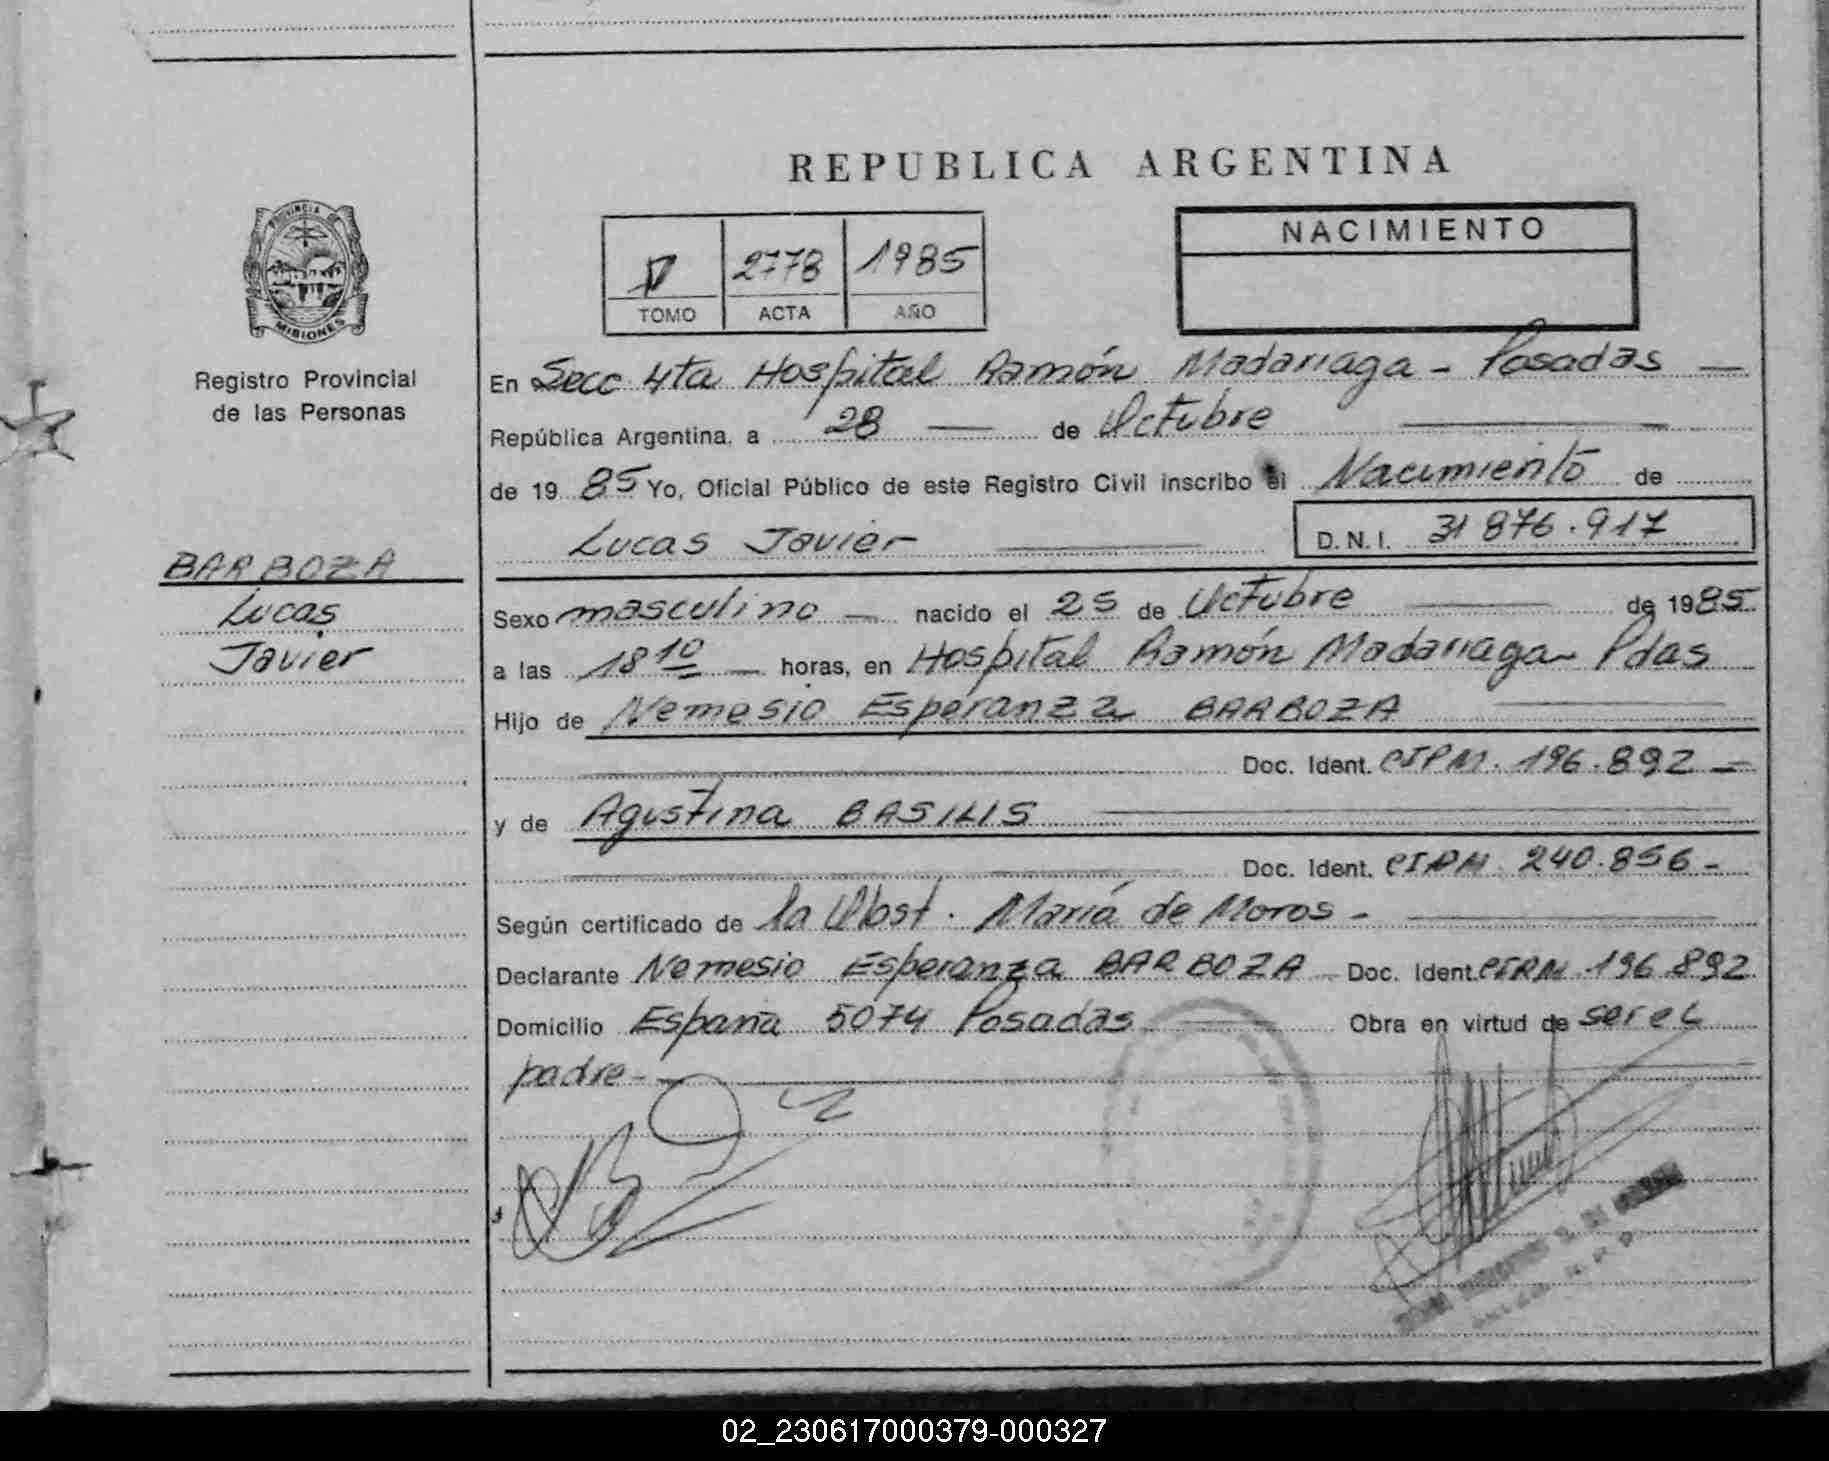 REPUBLICA ARGENTINA
PROVINCIA
MISIONES
Registro Provincial
de las Personas
2778 1985
TOMO ACTA AÑO
NACIMIENTO
En Secc 4ta Hospital Ramón Madariaga - Posadas -
República Argentina, a 28 de Octubre
de 1985 Yo, Oficial Público de este Registro Civil inscribo el Nacimiento de
Lucas Javier
D.N.I. 31 876.917
BARBOZA
Lucas
Javier
Sexo masculino - nacido el 25 de Octubre de 1985
a las 18 10 - horas, en Hospital Ramón Madariaga - Pdas
Hijo de Nemesio Esperanza BARBOZA
Doc. Ident. CIPM. 196.892 -
y de Agustina BASILIS
Doc. Ident. CIPM 240.856 -
Según certificado de la Obst. María de Moros -
Declarante Nemesio Esperanza BARBOZA Doc. Ident. CIPM 196.892
Domicilio España 5074 Posadas Obra en virtud de ser el
padre -
02_230617000379-000327